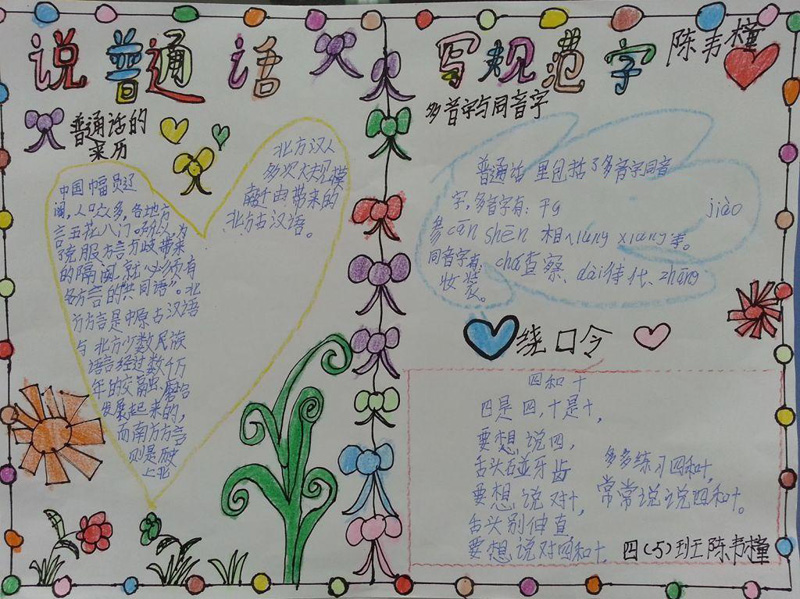 说普通话
写规范字
陈韦橦
普通话的
来历
中国幅员辽
阔,人口众多,各地方
言五花八门
克服方言分歧带来
的隔阂,就必须有
各方言的共同语”。北
方方言是中原古汉语
与北方少数民族
语言经过数千万
年的交融、磨合
发展起来的,
而南方方言
则是历史
上北
北方汉人
多次大规模
南迁由带来的
北方古汉语。
多音字与同音字
普通话里包括了多音字同音
字,多音字有:干g jiào
参cān shēn 相xiāng xiàng等。
同音字有 chá查察、dài待代、zhuāng
妆装。
绕口令
四和十
四是四,十是十,
要想说四,
舌头碰牙齿
要想说对十,
舌头别伸直
要想说对四和十,
多多练习四和十,
常常说说四和十。
四(5)班陈韦橦